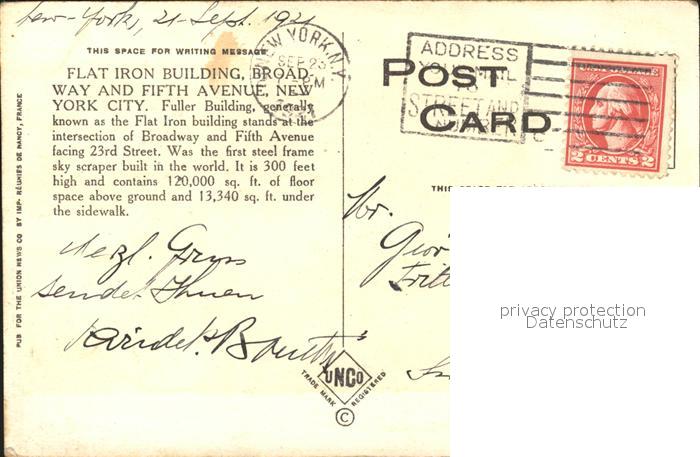 New-York, 21-Sept. 1921
THIS SPACE FOR WRITING MESSAGE
FLAT IRON BUILDING, BROAD-
WAY AND FIFTH AVENUE, NEW
YORK CITY. Fuller Building, generally
known as the Flat Iron building stands at the
intersection of Broadway and Fifth Avenue
facing 23rd Street. Was the first steel frame
sky scraper built in the world. It is 300 feet
high and contains 120,000 sq. ft. of floor
space above ground and 13,340 sq. ft. under
the sidewalk.
Herzl. Gruss
sendet Ihnen
PUB FOR THE UNION NEWS CO BY IMP. RÉUNIES DE NANCY, FRANCE
NEW YORK, N.Y.
SEP 23
PM
ADDRESS
YOUR MAIL
TO
STREET AND
POST
CARD
2 CENTS 2
THIS SPACE FOR
Mr.
privacy protection
Datenschutz
UNCO
TRADE MARK REGISTERED
©